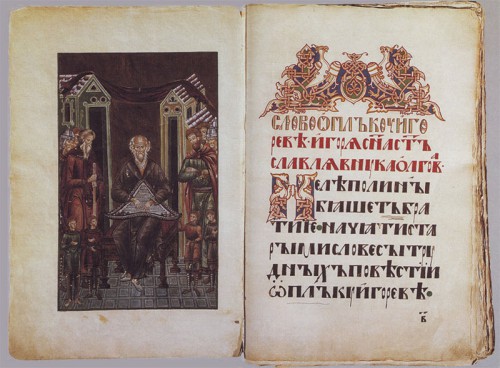 СЛОВО Ѡ ПЛЪКꙋ ИГО
РЕВѢ· ИГОРѦ СНА СТЪ
СЛАВЛѦ ВНꙋКА ОЛГОВ·
НЕ ЛѢПО ЛИ НЫ
БѦШЕТЪ БРА
ТИЕ· НАЧѦТИ СТА
РЫМИ СЛОВЕСЫ ТРꙋ
ДНЫХЪ ПОВѢСТІИ
Ѡ ПЛЪКꙋ ИГОРЕВѢ·
в҃